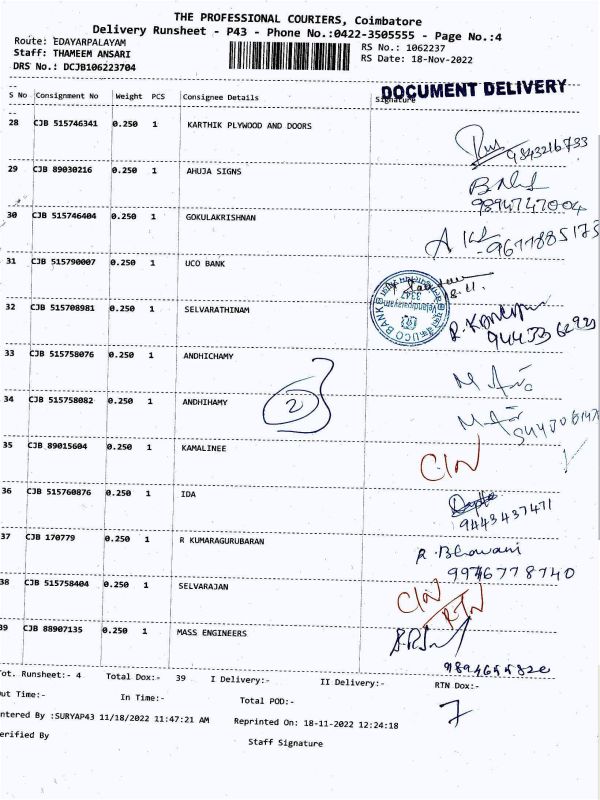 THE PROFESSIONAL COURIERS, Coimbatore
Delivery Runsheet - P43 - Phone No.:0422-3505555 - Page No.:4
Route: EDAYARPALAYAM
RS No.: 1062237
Staff: THAMEEM ANSARI
RS Date: 18-Nov-2022
DRS No.: DCJB106223704
DOCUMENT DELIVERY
S No Consignment No Weight PCS Consignee Details Signature
28 CJB 515746341 0.250 1 KARTHIK PLYWOOD AND DOORS
9843216733
29 CJB 89030216 0.250 1 AHUJA SIGNS
9894747004
30 CJB 515746404 0.250 1 GOKULAKRISHNAN
31 CJB 515790007 0.250 1 UCO BANK
UCO BANK
32 CJB 515708981 0.250 1 SELVARATHINAM
33 CJB 515758076 0.250 1 ANDHICHAMY
34 CJB 515758082 0.250 1 ANDHIHAMY
2
35 CJB 89015604 0.250 1 KAMALINEE
36 CJB 515760876 0.250 1 IDA
9443437471
37 CJB 170779 0.250 1 R KUMARAGURUBARAN
R. Bhavani
9976778740
38 CJB 515758404 0.250 1 SELVARAJAN
RTN
39 CJB 88907135 0.250 1 MASS ENGINEERS
Tot. Runsheet:- 4 Total Dox:- 39 I Delivery:- II Delivery:- RTN Dox:-
Out Time:- In Time:- Total POD:-
7
Entered By :SURYAP43 11/18/2022 11:47:21 AM Reprinted On: 18-11-2022 12:24:18
Verified By Staff Signature